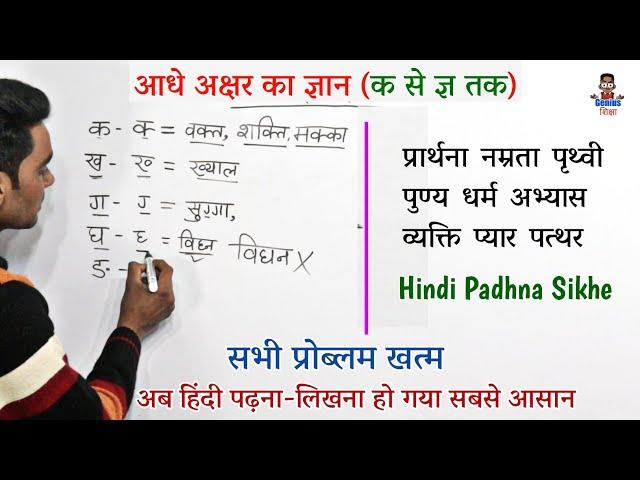 आधे अक्षर का ज्ञान (क से ज्ञ तक)
Genius
शिक्षा
क - क् = वक्त, शक्ति, मक्का
ख - ख् = ख्याल
ग - ग् = सुग्गा,
घ - घ् = विघ्न विघन X
ङ -
प्रार्थना नम्रता पृथ्वी
पुण्य धर्म अभ्यास
व्यक्ति प्यार पत्थर
Hindi Padhna Sikhe
सभी प्रोब्लम खत्म
अब हिंदी पढ़ना-लिखना हो गया सबसे आसान